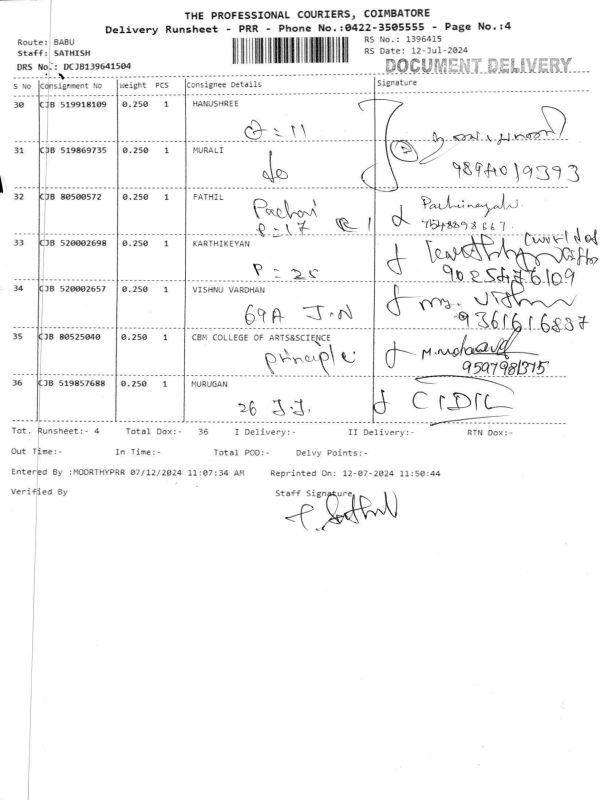 THE PROFESSIONAL COURIERS, COIMBATORE
Delivery Runsheet - PRR - Phone No.:0422-3505555 - Page No.:4
Route: BABU
RS No.: 1396415
Staff: SATHISH
RS Date: 12-Jul-2024
DRS No.: DCJB139641504
DOCUMENT DELIVERY
S No Consignment No Weight PCS Consignee Details Signature
30 CJB 519918109 0.250 1 HANUSHREE
31 CJB 519869735 0.250 1 MURALI
9894019393
32 CJB 80500572 0.250 1 FATHIL
P=17
7548898667
33 CJB 520002698 0.250 1 KARTHIKEYAN
P = 25
9025476109
34 CJB 520002657 0.250 1 VISHNU VARDHAN
69A J.N
9361616837
35 CJB 80525040 0.250 1 CBM COLLEGE OF ARTS&SCIENCE
principle
9597981375
36 CJB 519857688 0.250 1 MURUGAN
26 J.J.
Tot. Runsheet:- 4 Total Dox:- 36 I Delivery:- II Delivery:- RTN Dox:-
Out Time:- In Time:- Total POD:- Delvy Points:-
Entered By :MOORTHYPRR 07/12/2024 11:07:34 AM Reprinted On: 12-07-2024 11:50:44
Verified By Staff Signature